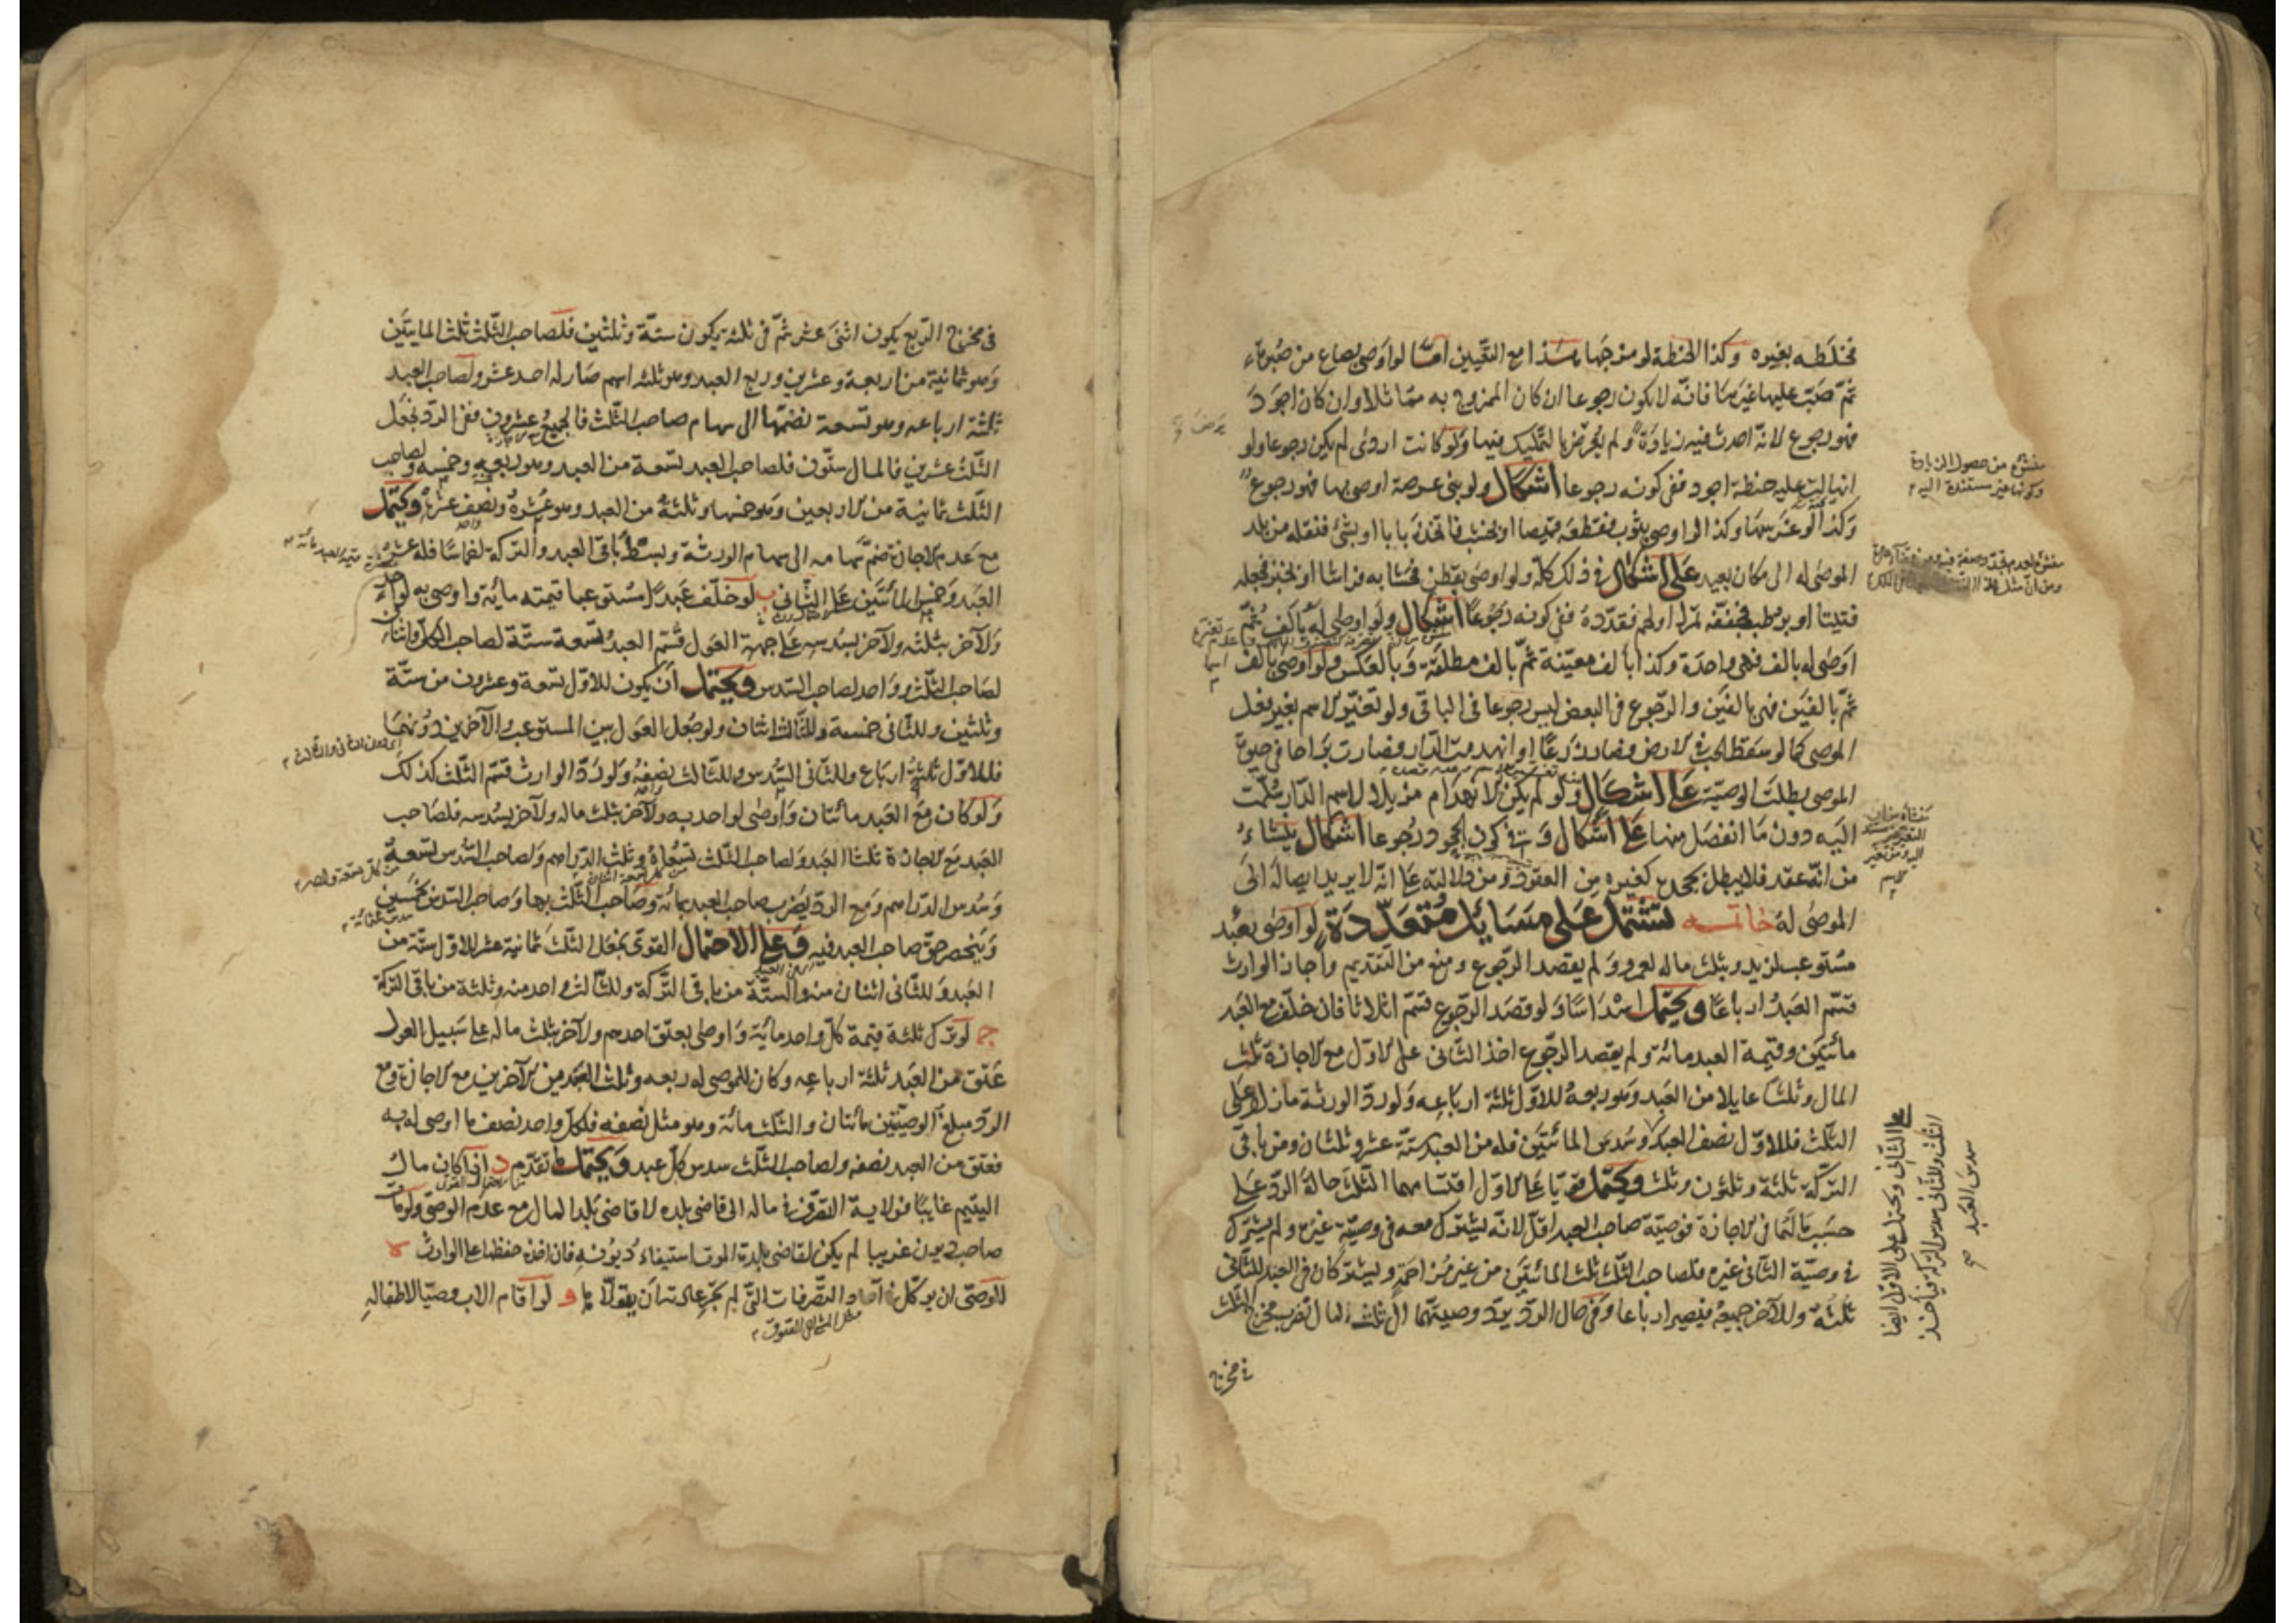 فخلطه بغيره وكذا الحنطة لو مزجها هذا مع التعيين امّا لو اوصى بصاع من صبرة
ثمّ صبّ عليها غيرها فانّه لا يكون رجوعا ان كان الممزوج به مماثلا وان كان اجود
فهو رجوع لانّه احدث فيه زيادة ولم يرض بالتمليك فيها ولو كانت اردى لم يكن رجوعا ولو
انهالت عليه حنطة اجود ففى كونه رجوعا اشكال ولو بنى عرصة اوصى بها فهو رجوع
وكذا لو غرسها وكذا لو اوصى بثوب فقطعه قميصا او بخشب فاتخذه بابا او بشئ فنقله من بلد
الموصى له الى مكان بعيد على اشكال فى ذلك كلّه ولو اوصى بقطن فحشا به فراشا او بخبز فجعله
فتيتا او برطب فجفّفه تمرا او لحم فقدّده ففى كونه رجوعا اشكال ولو اوصى له بالف ثمّ
اوصى له بالف فهى واحدة وكذا بالف معيّنة ثمّ بالف مطلقة وبالعكس ولو اوصى بالف
ثمّ بالفين فهى بالفين والرّجوع فى البعض ليس رجوعا فى الباقى ولو تغيّر الاسم بغير فعل
الموصى كما لو سقط الحبّ فى الارض فصار زرعا او انهدمت الدّار فصارت براحا فى حيوة
الموصى بطلت الوصيّة على اشكال ولو لم يكن الانهدام مزيلا لاسم الدّار سلّمت
اليه دون ما انفصل منها على اشكال وفى كون الجحود رجوعا اشكال ينشاء
من انّه عقد فلا يبطل بجحده كغيره من العقود ومن دلالته على انّه لا يريد ايصاله الى
الموصى له خاتمه تشتمل على مسائل متعدّدة ا لو اوصى بعبد
مستوعب لزيد وبثلث ماله لعمرو ولم يقصد الرّجوع ومنع من التقديم واجاز الوارث
قسّم العبد ارباعا ويحتمل اسداسا ولو قصد الرّجوع قسّم اثلاثا فان خلّف مع العبد
مائتين وقيمة العبد مائة ولم يقصد الرّجوع اخذ الثانى على الاوّل مع الاجازة ثلث
المال وثلثا عايلا من العبد وهو ربعه وللاوّل ثلثة ارباعه ولو ردّ الورثة ما زاد على
الثلث فللاوّل نصف العبد وسدس المائتين فله من العبد ستّة عشر وثلثان ومن باقى
التركة ثلثة وثلثون وثلث ويحتمل قويّا على الاوّل اقتسامهما الثلث حالة الردّ على
حسب ما لهما فى الاجازة فوصيّة صاحب العبد اقلّ لانّه يشترك معه فى وصيّته غيره ولم يشترك
فى وصيّة الثانى غيره فلصاحب الثلث ثلث المائتين من غير مزاحمة ويشتركان فى العبد للثانى
ثلثه وللآخر جميعه فيصير ارباعا وفى حال الردّ يردّ وصيتهما الى ثلث المال تضرب مخرج الثلث
فى مخرج
منشؤه من حصول الزيادة
وكونها غير مستندة اليه
على الثانى ويحتمل على الاوّل ايضا
الثلث وللثانى سدس التركة فيأخذ
سدس العبد صح
فى مخرج الرّبع يكون اثنى عشر ثمّ فى ثلثة يكون ستّة وثلثين فلصاحب الثّلث ثلث المايتين
وهو ثمانية من اربعة وعشرين وربع العبد وهو ثلثة اسهم صار له احد عشر ولصاحب العبد
ثلثة ارباعه وهو تسعة تضمّها الى سهام صاحب الثلث فالجميع عشرون ففى الردّ تجعل
الثّلث عشرين فالمال ستّون فلصاحب العبد تسعة من العبد وهو ربعه وخمسه ولصاحب
الثلث ثمانية من الاربعين وهو خمسها وثلثة من العبد وهو عشره ونصف عشره ويحتمل
مع عدم الاجازة ضمّ سهامه الى سهام الورثة وبسط باقى العبد والتركة اخماسا فله عشر
العبد وخمس المائتين على الثانى ب لو خلّف عبدا مستوعبا قيمته مائة واوصى به لواحد
ولآخر بثلثه ولآخر بسدسه على جهة العول قسّم العبد تسعة ستّة لصاحب الكلّ واثنان
لصاحب الثلث وواحد لصاحب السّدس ويحتمل أن يكون للاوّل تسعة وعشرون من ستّة
وثلثين وللثانى خمسة وللثالث اثنان ولو جعل العول بين المستوعب والآخرين دونهما
فللاوّل ثلثة ارباع وللثانى السّدس وللثالث نصفه ولو ردّ الوارث قسّم الثلث كذلك
ولو كان مع العبد مائتان واوصى لواحد به ولآخر بثلث ماله ولآخر بسدسه فلصاحب
العبد مع الاجازة ثلثا العبد ولصاحب الثلث تسعاه وثلث الدّراهم ولصاحب السّدس تسعه
وسدس الدّراهم ومع الردّ يضرب صاحب العبد بمائة وصاحب الثّلث بها وصاحب السّدس بخمسين
وينحصر حقّ صاحب العبد فيه وعلى الاحتمال القوى يجعل الثّلث ثمانية عشر للاوّل ستّة من
العبد وللثانى اثنان منه والستّة من باقى التركة وللثالث واحد منه وثلثة من باقى التركة
ج لو ترك ثلثة قيمة كلّ واحد مائة واوصى بعتق احدهم ولآخر بثلث ماله على سبيل العول
عتق من العبد ثلثة ارباعه وكان للموصى له ربعه وثلث العبدين الآخرين مع الاجازة ومع
الردّ مبلغ الوصيّتين مائتان والثّلث مائة وهو مثل نصفه فلكلّ واحد نصف ما اوصى له به
فعتق من العبد نصفه ولصاحب الثلث سدس كلّ عبد ويحتمل ما تقدّم د اذا كان مال
اليتيم غايبا فولاية التصرّف فى ماله الى قاضى بلده لا قاضى بلد المال مع عدم الوصىّ ولو مات
صاحب ديون غريبا لم يكن لقاضى بلدة الموت استيفاء ديونه فان اخذ حفظها على الوارث ه
للوصىّ ان يوكّل فى آحاد التصّرفات الّتى لم تجر عادته أن يتولّاها و لو اقام الاب وصيّا لاطفاله
قيمة العبد مائة
اى دون الثانى والثالث